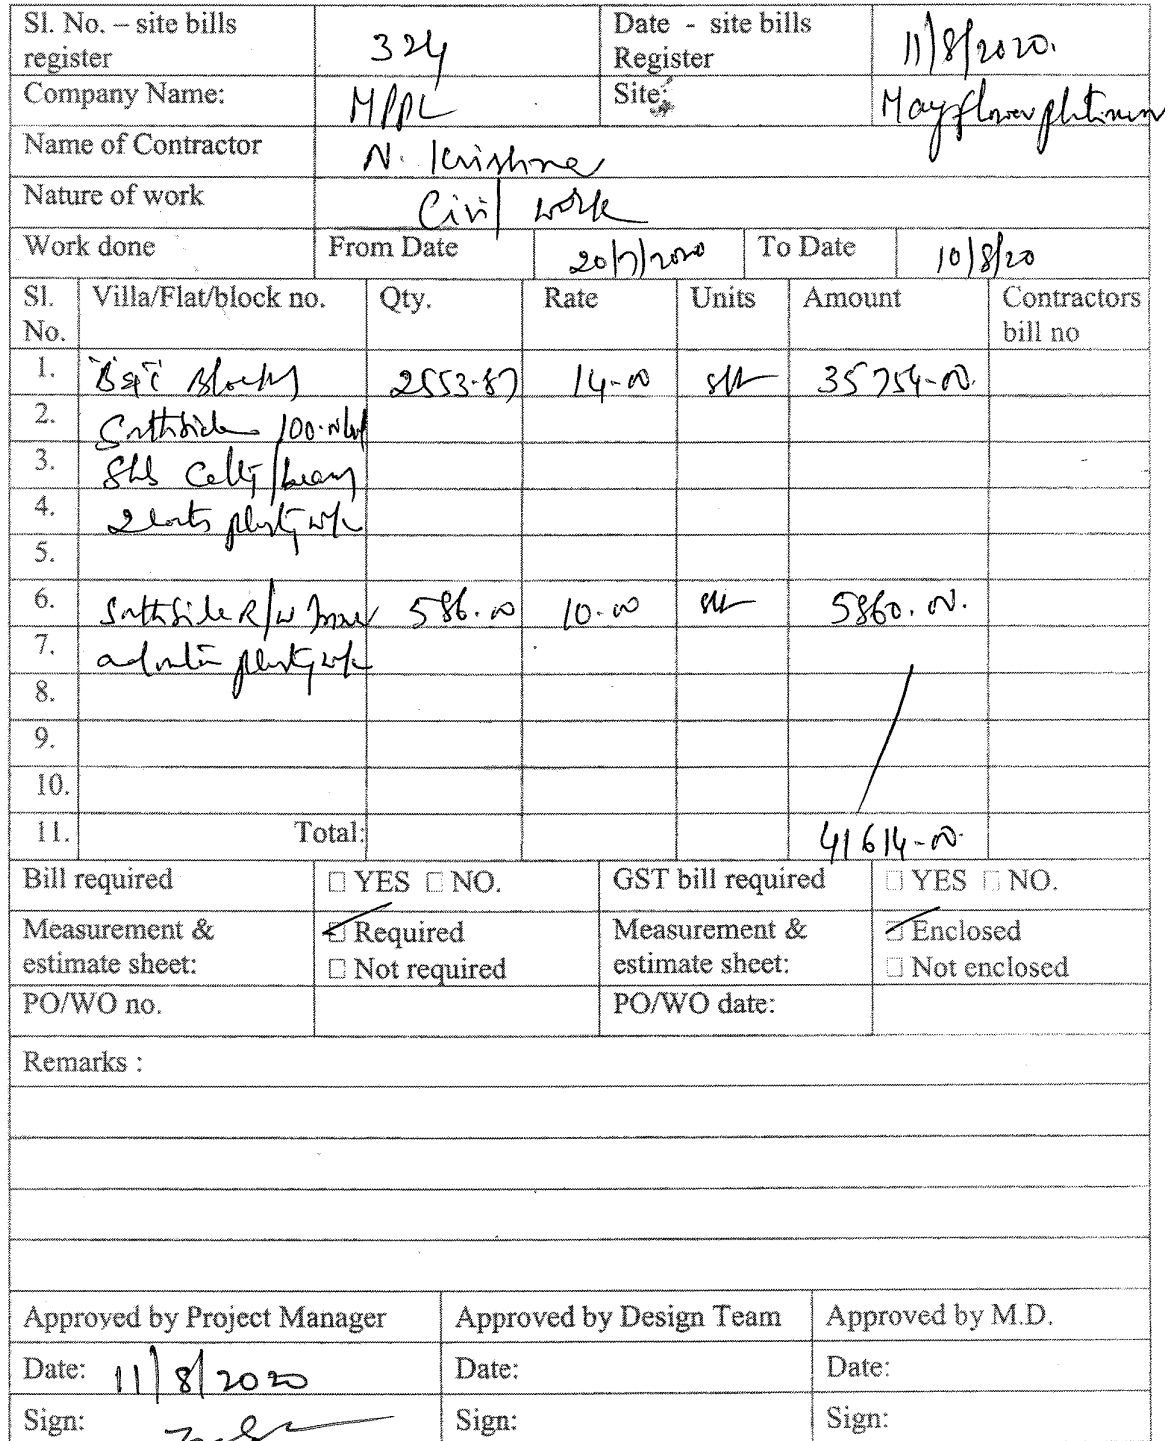 Sl. No. – site bills register 324 Date - site bills Register 11/8/2020.
Company Name: MPPL Site: Mayflower platinum
Name of Contractor N. Krishna
Nature of work Civil work
Work done From Date 20/7/2020 To Date 10/8/20
Sl. No. Villa/Flat/block no. Qty. Rate Units Amount Contractors bill no
1. "B&C" Blocks 2553-87 14-00 sft 35754-00.
2. Southside
3. Slab
4. 2 coats
5.
6. Southside R/W 586.00 10-00 sft 5860.00.
7.
8.
9.
10.
11. Total: 41614-00.
Bill required □ YES □ NO. GST bill required □ YES □ NO.
Measurement & estimate sheet: ☑ Required □ Not required Measurement & estimate sheet: ☑ Enclosed □ Not enclosed
PO/WO no. PO/WO date:
Remarks :
Approved by Project Manager Approved by Design Team Approved by M.D.
Date: 11/8/2020 Date: Date:
Sign: Sign: Sign: